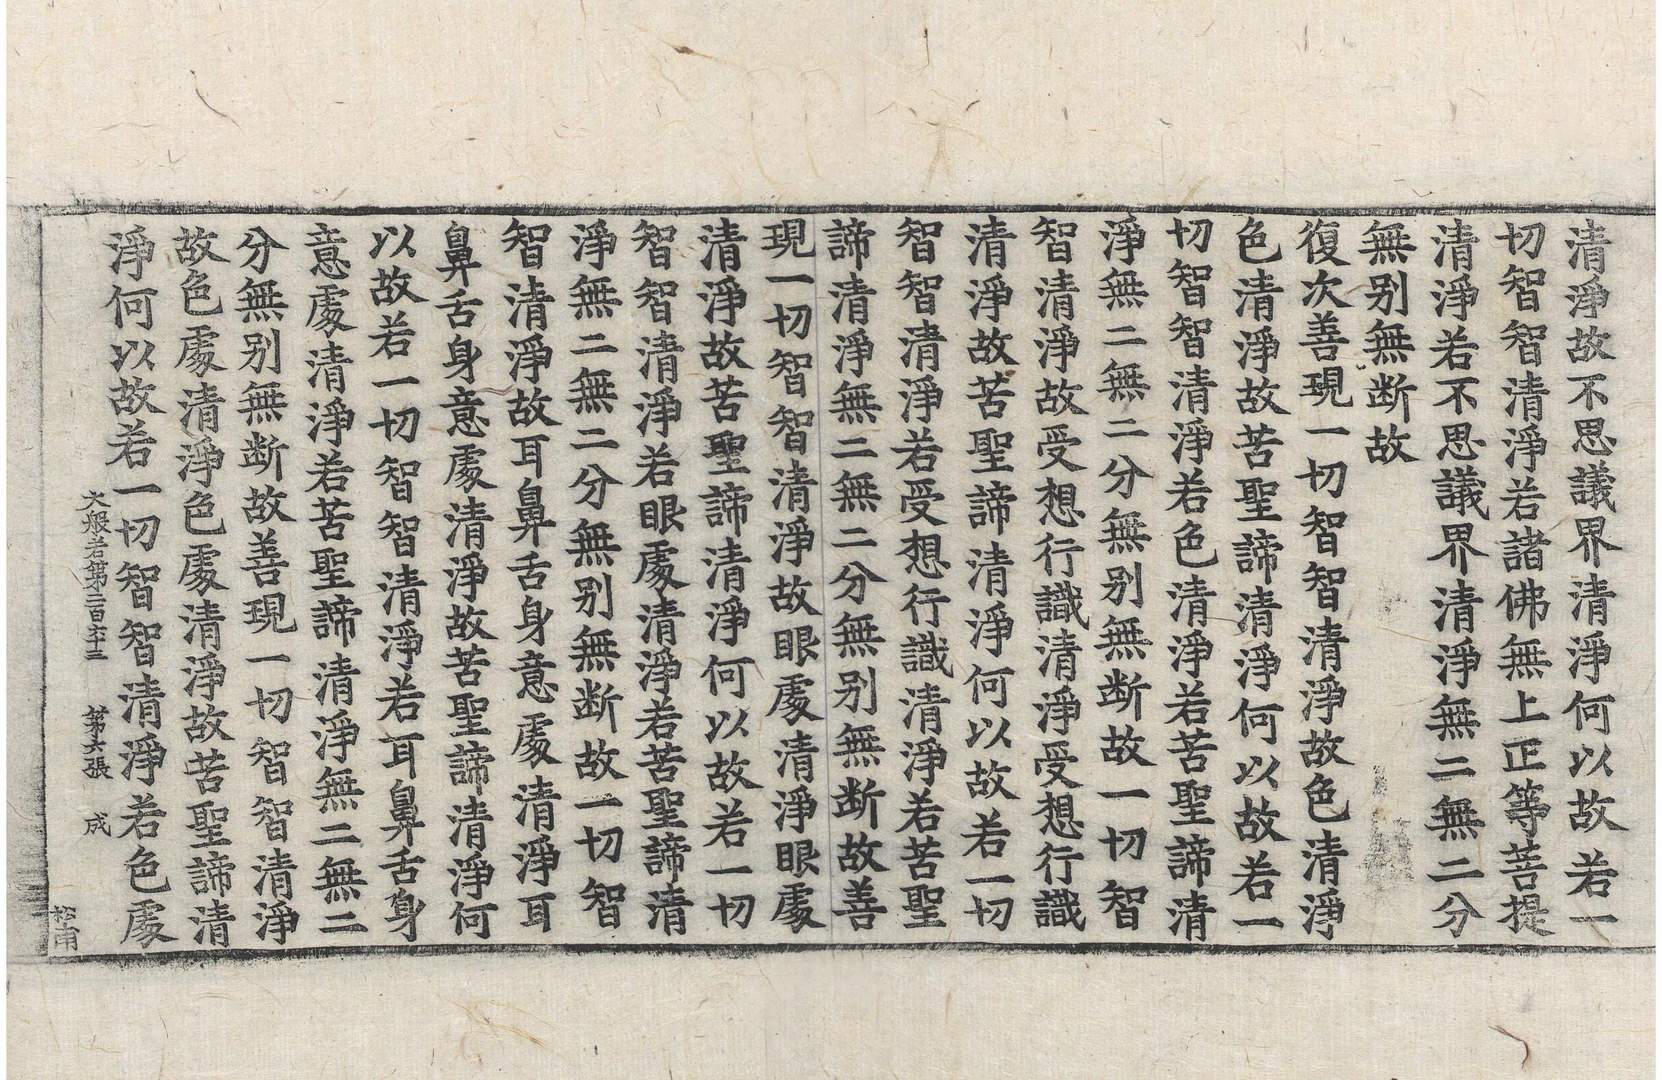 清淨故不思議界清淨何以故若一
切智智清淨若諸佛無上正等菩提
清淨若不思議界清淨無二無二分
無别無断故
復次善現一切智智清淨故色清淨
色清淨故苦聖諦清淨何以故若一
切智智清淨若色清淨若苦聖諦清
淨無二無二分無别無断故一切智
智清淨故受想行識清淨受想行識
清淨故苦聖諦清淨何以故若一切
智智清淨若受想行識清淨若苦聖
諦清淨無二無二分無别無断故善
現一切智智清淨故眼處清淨眼處
清淨故苦聖諦清淨何以故若一切
智智清淨若眼處清淨若苦聖諦清
淨無二無二分無别無断故一切智
智清淨故耳鼻舌身意處清淨耳
鼻舌身意處清淨故苦聖諦清淨何
以故若一切智智清淨若耳鼻舌身
意處清淨若苦聖諦清淨無二無二
分無别無断故善現一切智智清淨
故色處清淨色處清淨故苦聖諦清
淨何以故若一切智智清淨若色處
大般若第二百六十三 第六張 成